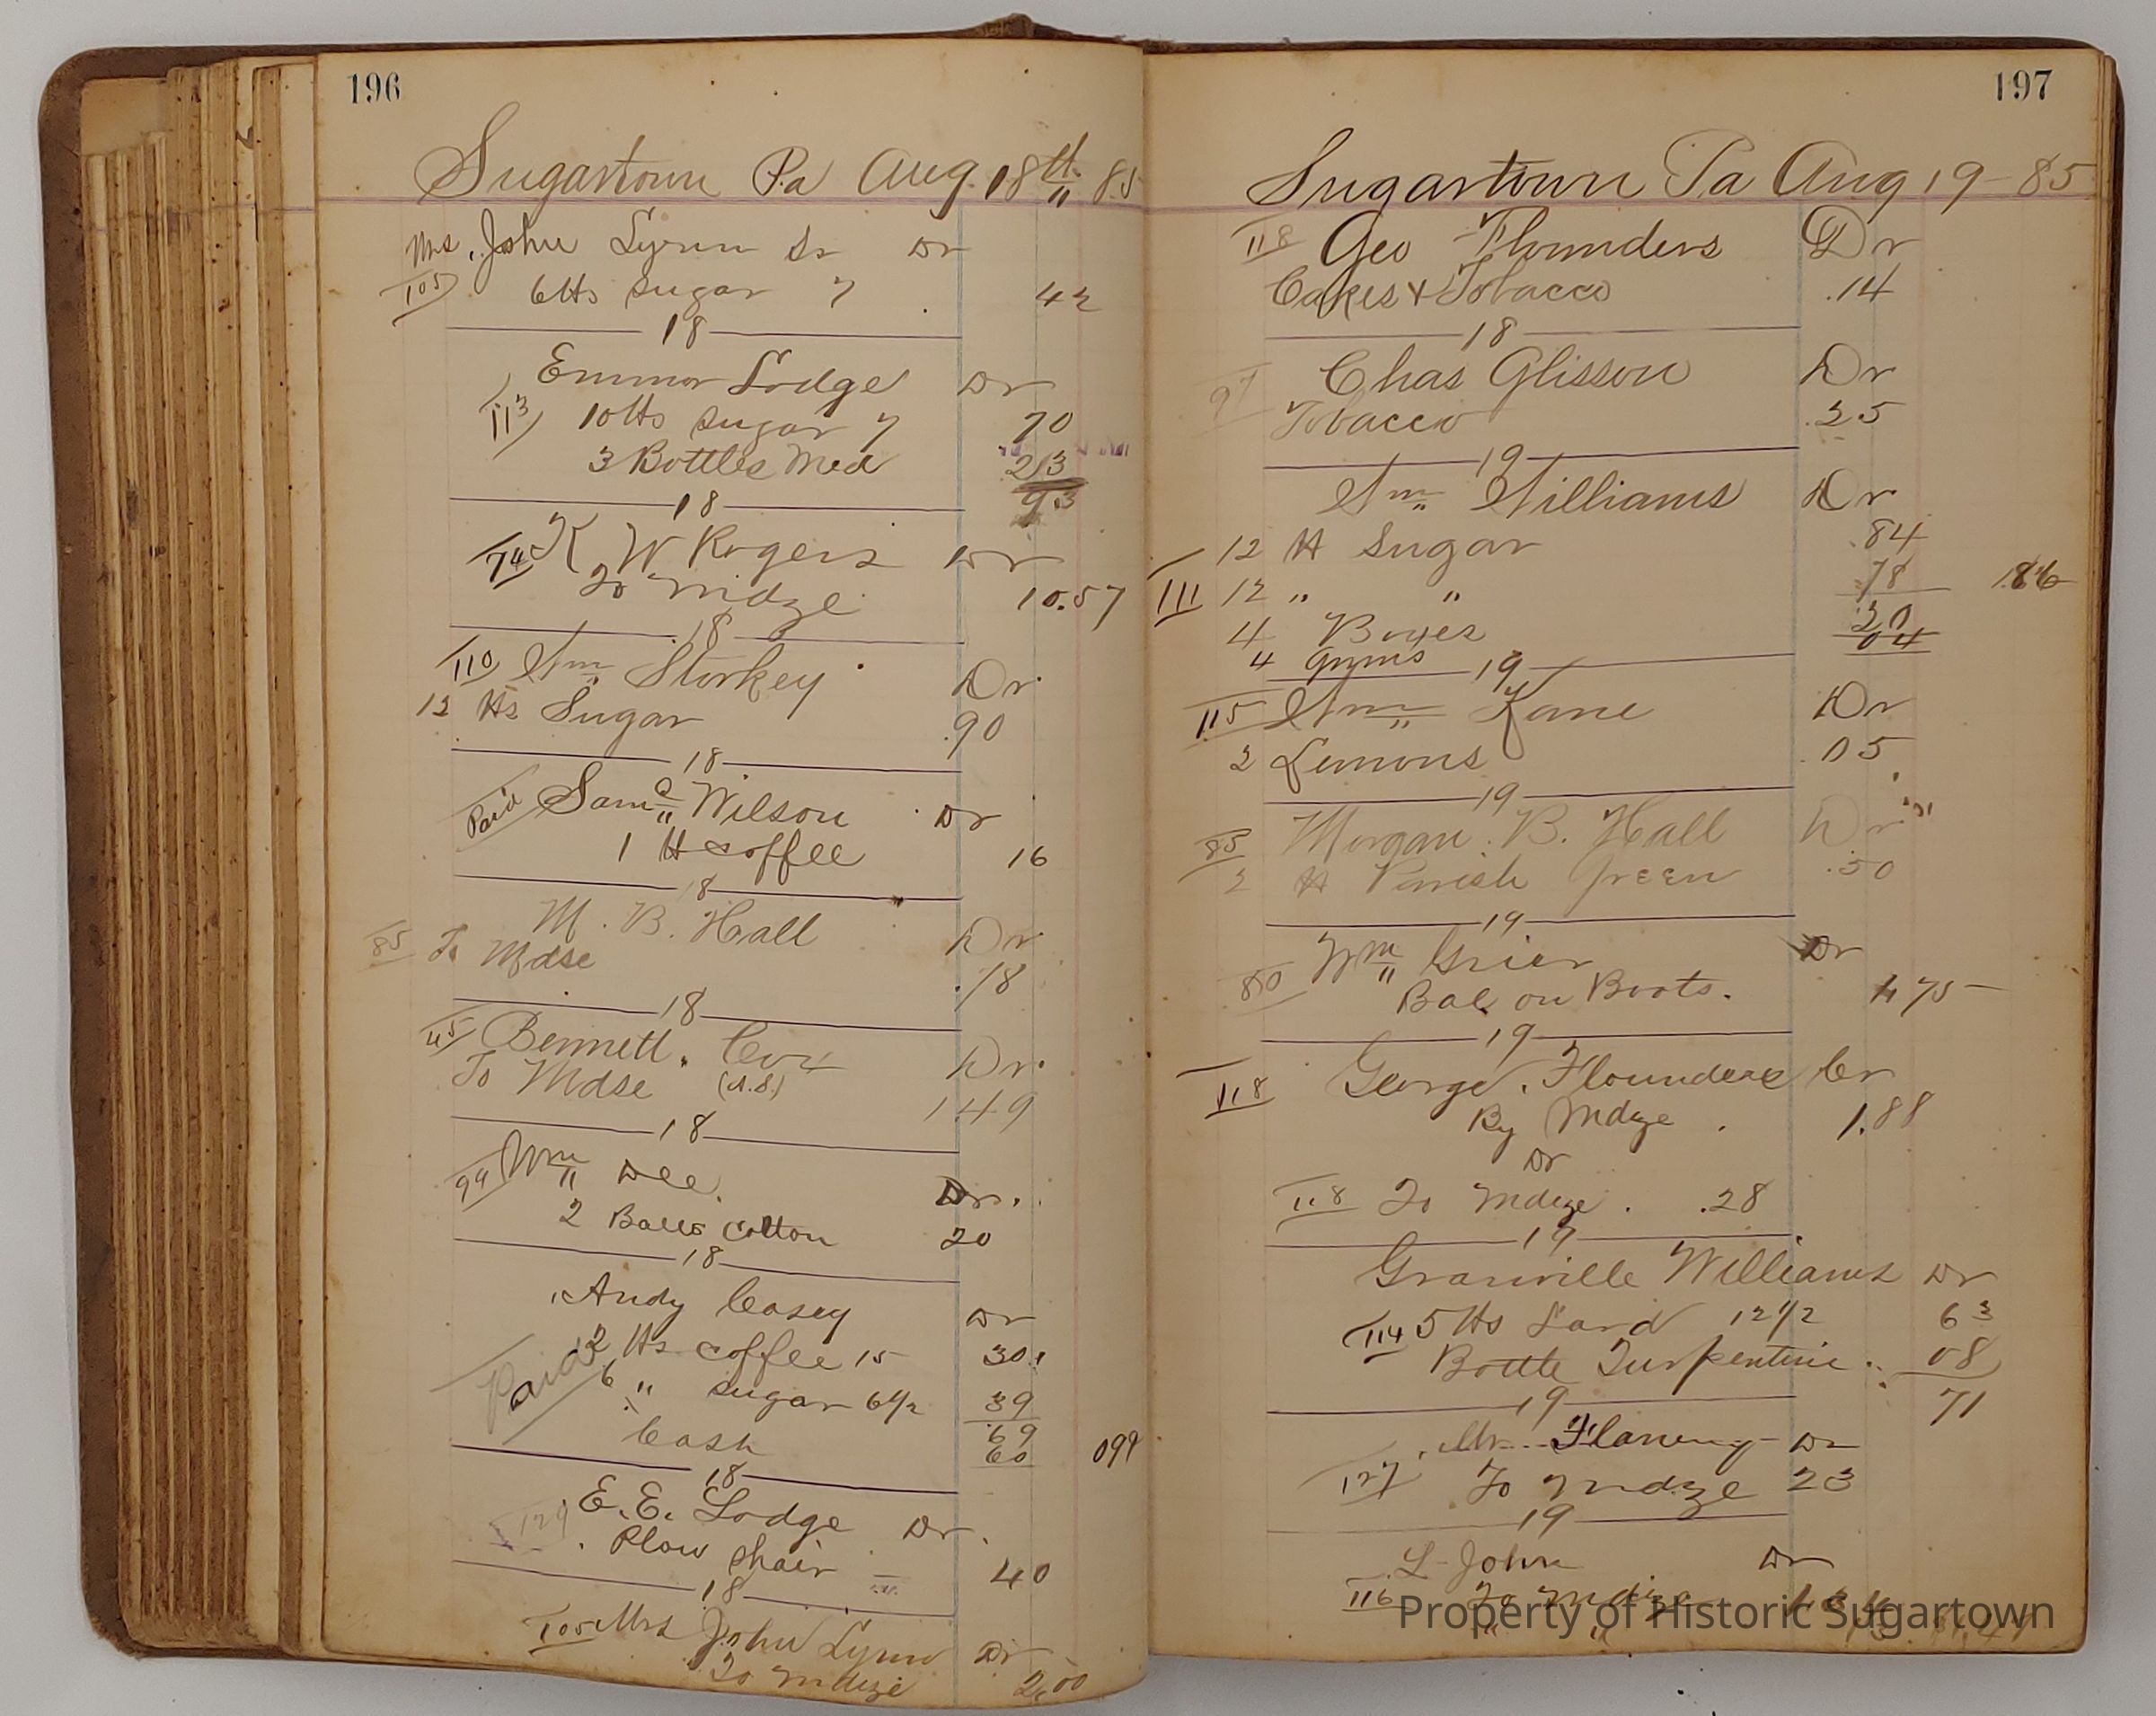 196
Sugartown Pa Aug 18th 85
Mrs. John Lynn Sr Dr
105 6 lbs Sugar 7 42
18
Emmor Lodge Dr
113 10 lbs Sugar 7 70
3 Bottles Med 23
93
18
74 K W Rogers Dr
To Mdze 10.57
18
110 Wm Storkey Dr
12 lbs Sugar .90
18
Paid Saml Wilson Dr
1 lb coffee 16
18
M. B. Hall Dr
85 To Mdse .18
18
45 Bennett. Cox Dr
To Mdse (A.S.) 149
18
99 Wm Dee. Dr.
2 Balls cotton 20
18
Andy Casey Dr
Paid 2 lbs coffee 15 30
6 " sugar 6 1/2 39
69
Cash 60
18
E. E. Lodge Dr.
129 Plow Shair 40
18
105 Mrs John Lynn Dr
To Mdze 2.00
197
Sugartown Pa Aug 19-85
118 Geo Flounders Dr
Cakes & Tobacco .14
18
97 Chas Glisson Dr
Tobacco .25
19
Wm Williams Dr
12 lb Sugar .84
111 12 " " .78
4 Boxes .20
4 Gums 04
19
115 Wm Kane Dr
2 Lemons .05
19
85 Morgan. B. Hall Dr
2 lb Parish Green .50
19
80 Wm Grier Dr
Bal on Boots. 1 75
19
118 George. Flounders Cr
By Mdze. 1.88
Dr
118 To Mdze. .28
19
Granville Williams Dr
114 5 lbs Lard 12 1/2 63
Bottle Turpentine. 08
71
19
Mr. Dr
127 To Mdze 23
19
L John Dr
116 To Mdze
" "
Property of Historic Sugartown